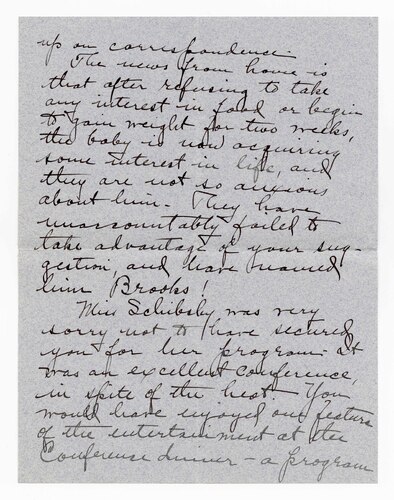 up on correspondence.
The news from home is
that after refusing to take
any interest in food or begin
to gain weight for two weeks,
the baby is now acquiring
some interest in life, and
they are not so anxious
about him. They have
unaccountably failed to
take advantage of your sug-
gestion, and have named
him Brooks!
Miss Schibsby was very
sorry not to have secured
you for her program. It
was an excellent conference,
in spite of the heat. You
would have enjoyed one feature
of the entertainment at the
Conference dinner - a program